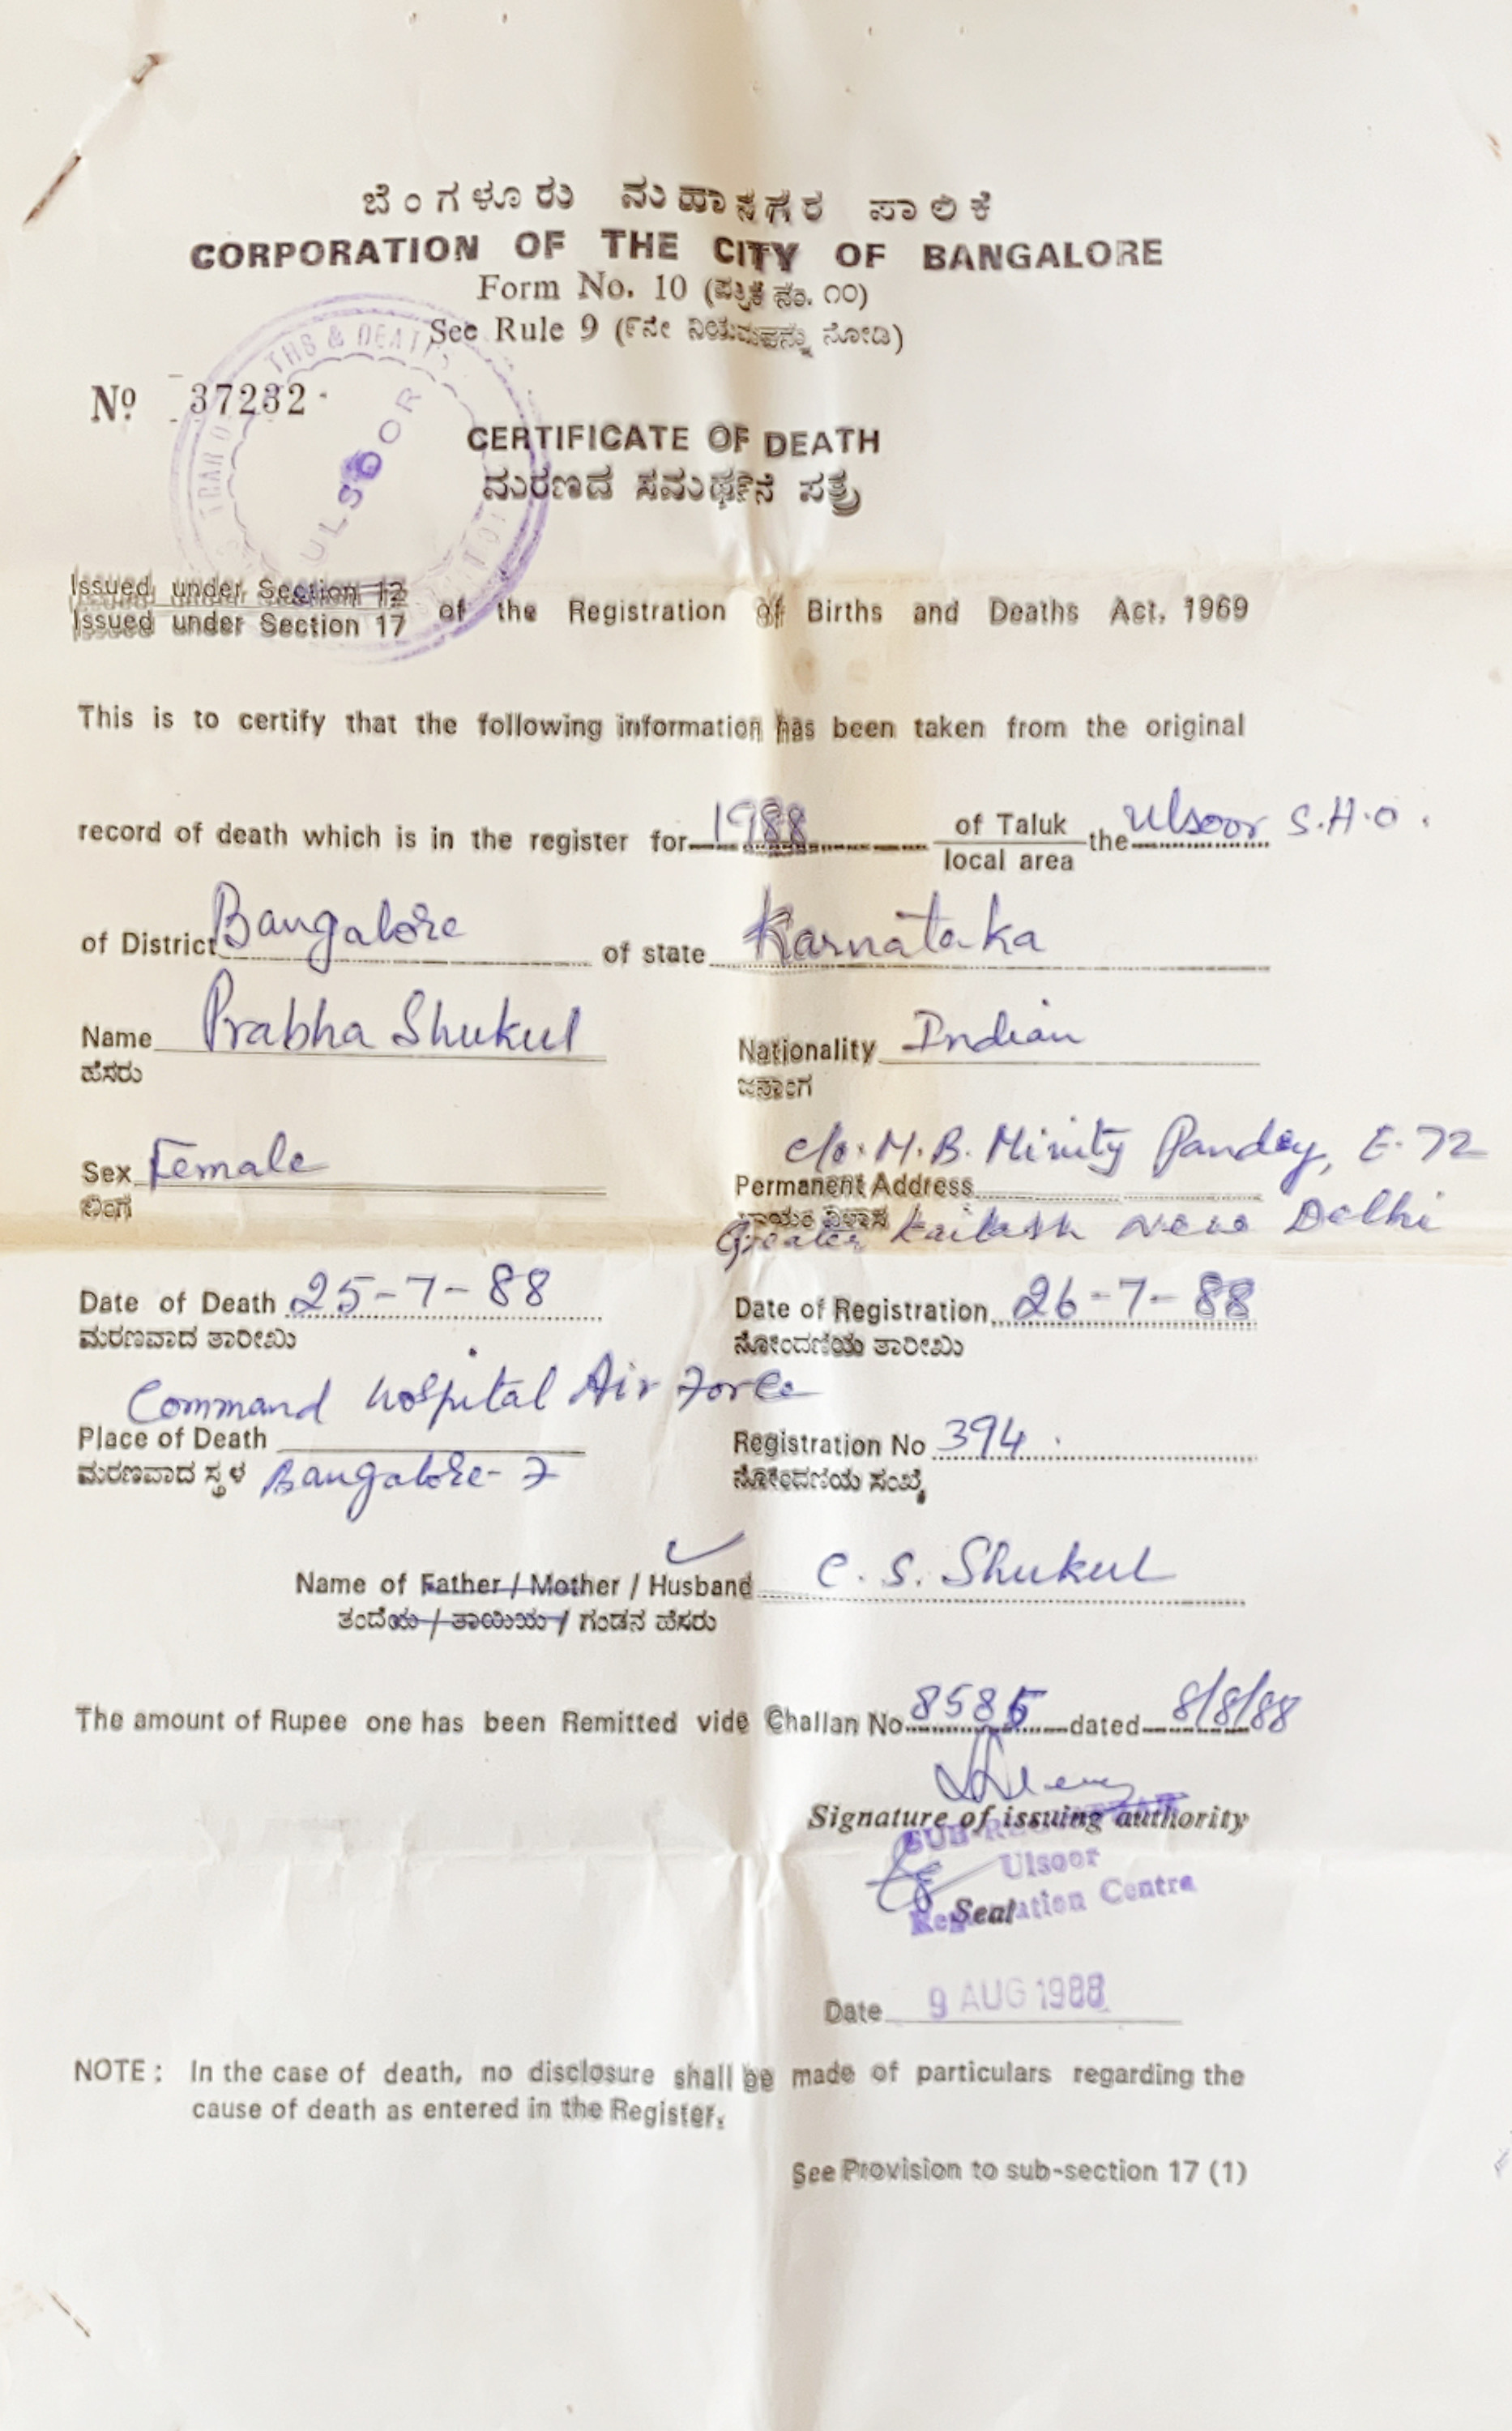 ಬೆಂಗಳೂರು ಮಹಾನಗರ ಪಾಲಿಕೆ
CORPORATION OF THE CITY OF BANGALORE
Form No. 10 (ಪತ್ರಿಕೆ ನಂ. ೧೦)
See Rule 9 (೯ನೇ ನಿಯಮವನ್ನು ನೋಡಿ)
THS & DEATHS
ULSOOR
No 37232
CERTIFICATE OF DEATH
ಮರಣದ ಸಮರ್ಥನೆ ಪತ್ರ
Issued under Section 12
Issued under Section 17 of the Registration of Births and Deaths Act, 1969
This is to certify that the following information has been taken from the original
record of death which is in the register for 1988 of Taluk / local area the Ulsoor S.H.O.
of District Bangalore of state Karnataka
Name Prabha Shukul Nationality Indian
ಹೆಸರು ಜನಾಂಗ
c/o. M. B. Pandey, E-72
Sex Female Permanent Address
ಲಿಂಗ ಖಾಯಂ ವಿಳಾಸ Greater Kailash New Delhi
Date of Death 25-7-88 Date of Registration 26-7-88
ಮರಣವಾದ ತಾರೀಖು ನೋಂದಣಿಯ ತಾರೀಖು
Command Hospital Air Force
Place of Death Registration No 394
ಮರಣವಾದ ಸ್ಥಳ Bangalore-7 ನೋಂದಣಿಯ ಸಂಖ್ಯೆ
Name of Father / Mother / Husband C. S. Shukul
ತಂದೆಯ / ತಾಯಿಯ / ಗಂಡನ ಹೆಸರು
The amount of Rupee one has been Remitted vide Challan No 8585 dated 8/8/88
Signature of issuing authority
SUB-REGISTRAR
Ulsoor
Registration Centre
Seal
Date 9 AUG 1988
NOTE : In the case of death, no disclosure shall be made of particulars regarding the
cause of death as entered in the Register.
See Provision to sub-section 17 (1)